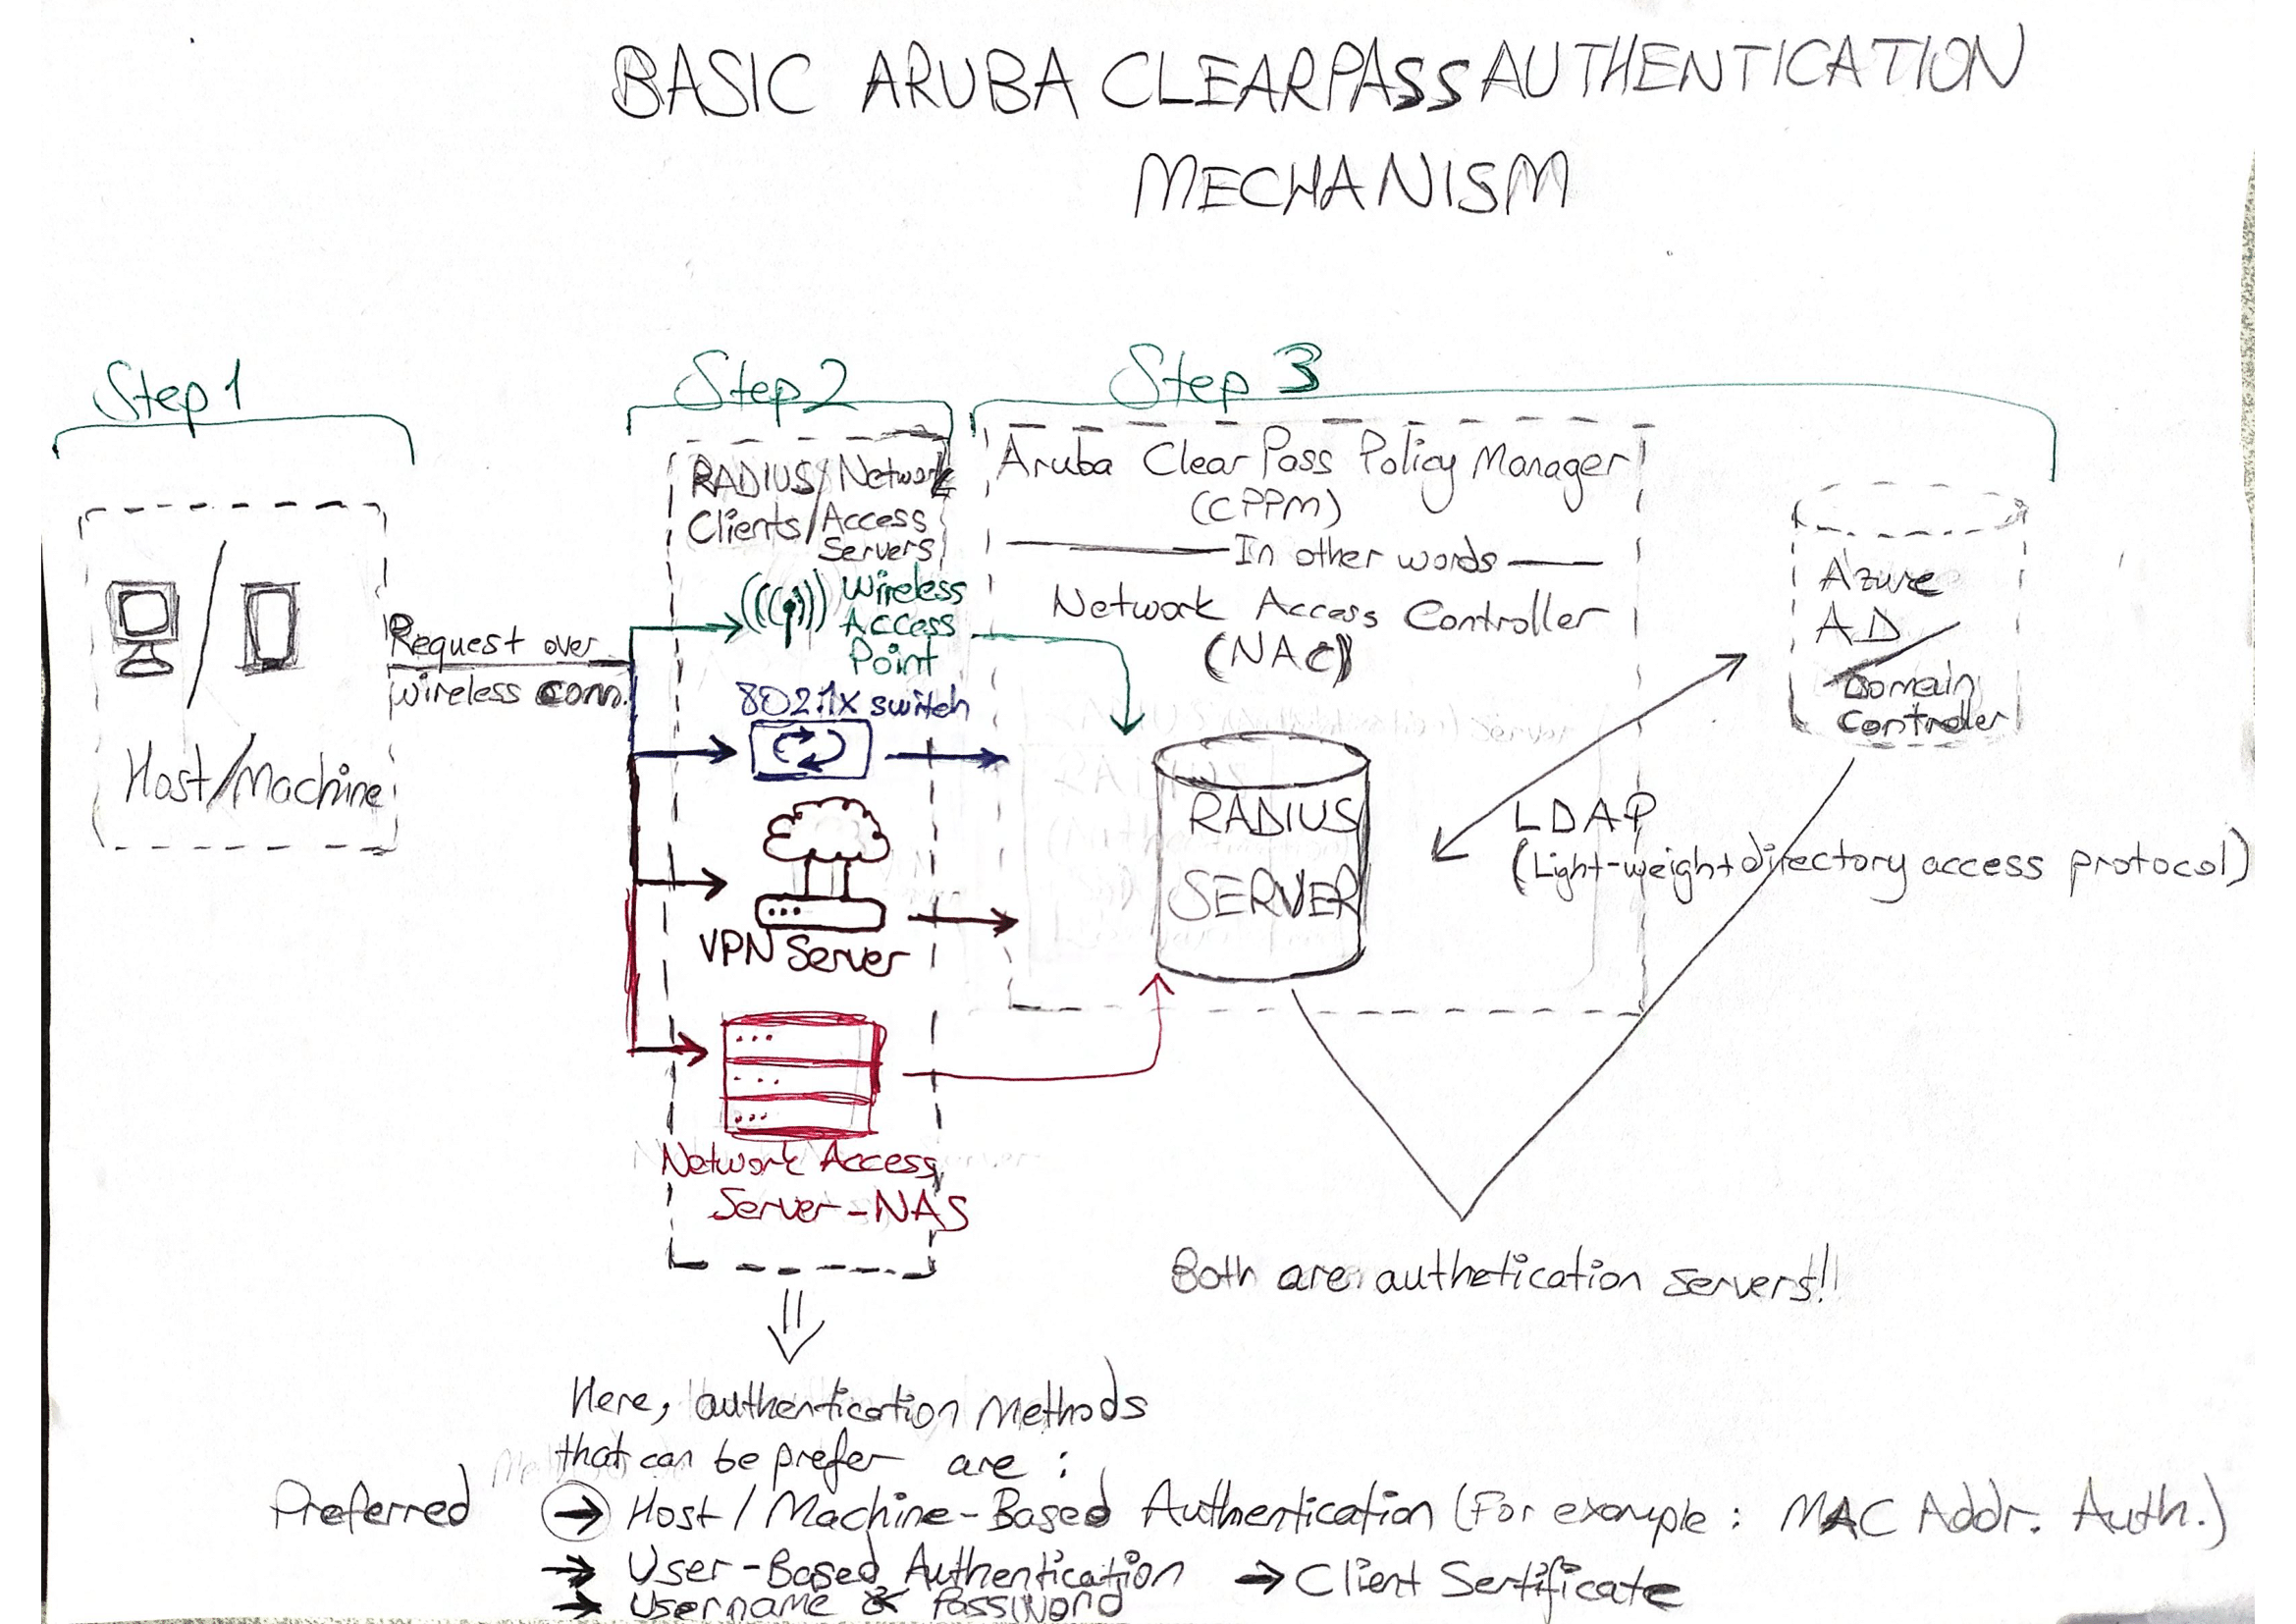 BASIC ARUBA CLEARPASS AUTHENTICATION
MECHANISM
Step 1
Step 2
Step 3
Host/Machine
Request over
wireless conn.
RADIUS/Network
Clients/Access
Servers
Wireless
Access
Point
802.1x switch
VPN Server
Network Access
Server-NAS
Aruba Clear Pass Policy Manager
(CPPM)
In other words
Network Access Controller
(NAC)
RADIUS
SERVER
Azure
AD
Domain
Controller
LDAP
(Light-weight directory access protocol)
Both are authetication servers!!
Here, authentication methods
that can be prefer are :
Preferred → Host / Machine-Based Authentication (For example : MAC Addr. Auth.)
→ User-Based Authentication → Client Sertificate
→ Username & Password